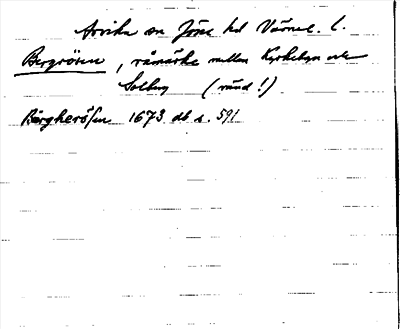 Arvika sn Jösse hd Värml. l.
Bergrösen, råmärke mellan Kyrkebyn och
Solberg (rund!)
Bergherösen 1673 db s. 591